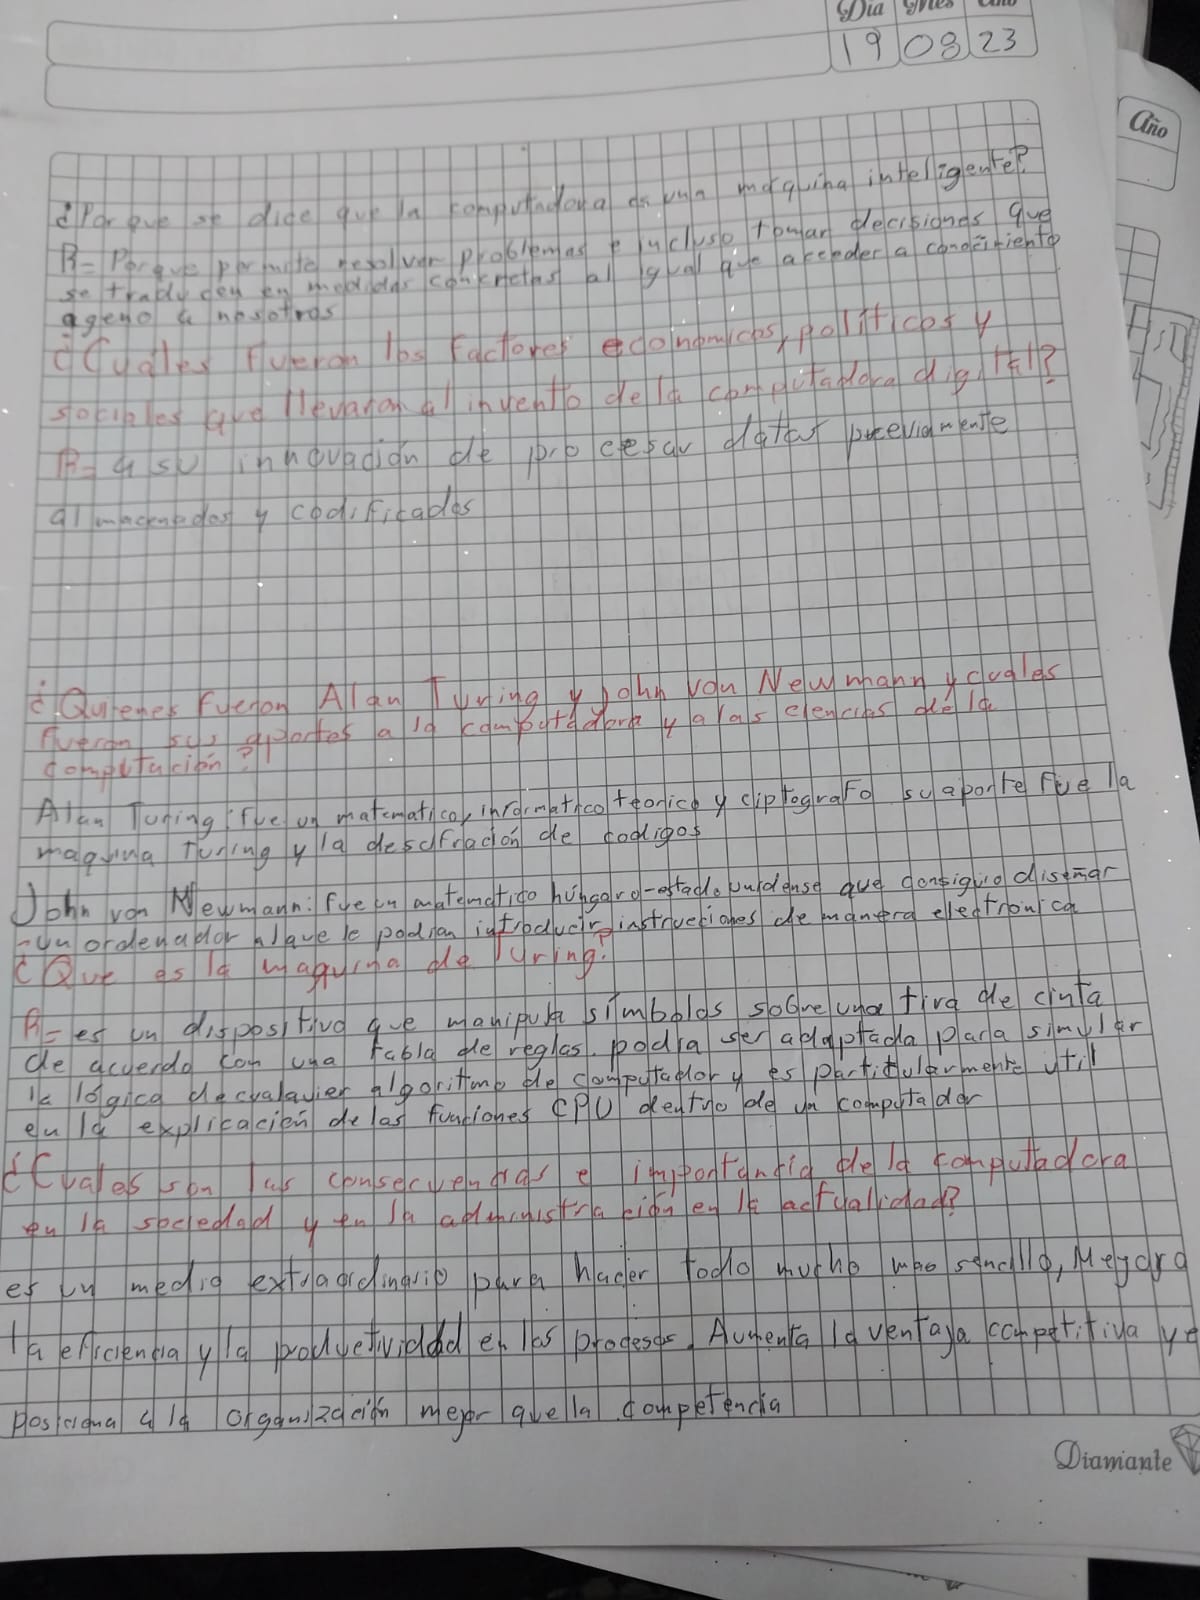 Dia Mes Año
19 08 23
Año
¿Por que se dice que la computadora es una maquina inteligente?
R= Porque permite resolver problemas e incluso tomar decisiones que
se traducen en medidas concretas al igual que acceder a conocimiento
ageno a nosotros
¿Cuales fueron los factores economicos, políticos y
sociales que llevaron al invento de la computadora digital?
R= a su innovación de procesar datos previamente
almacenados y codificados
¿Quienes fueron Alan Turing y John von Newmann y cuales
fueron sus aportes a la computadora y a las ciencias de la
computación?
Alan Turing: fue un matematico, informatico teorico y criptografo su aporte fue la
maquina Turing y la descifración de codigos
John von Newmann: fue un matematico húngaro-estadounidense que consiguio diseñar
un ordenador al que le podian introducir instrucciones de manera electronica
¿Que es la maquina de Turing?
R= es un dispositivo que manipula simbolos sobre una tira de cinta
de acuerdo con una tabla de reglas. podia ser adaptada para simular
la lógica de cualquier algoritmo de computador y es particularmente util
en la explicación de las funciones CPU dentro de un computador
¿Cuales son las consecuencias e importancia de la computadora
en la sociedad y en la administración en la actualidad?
es un medio extraordinario para hacer todo mucho mas sencillo, Mejora
la eficiencia y la productividad en los procesos. Aumenta la ventaja competitiva ya
posiciona a la organización mejor que la competencia
Diamante